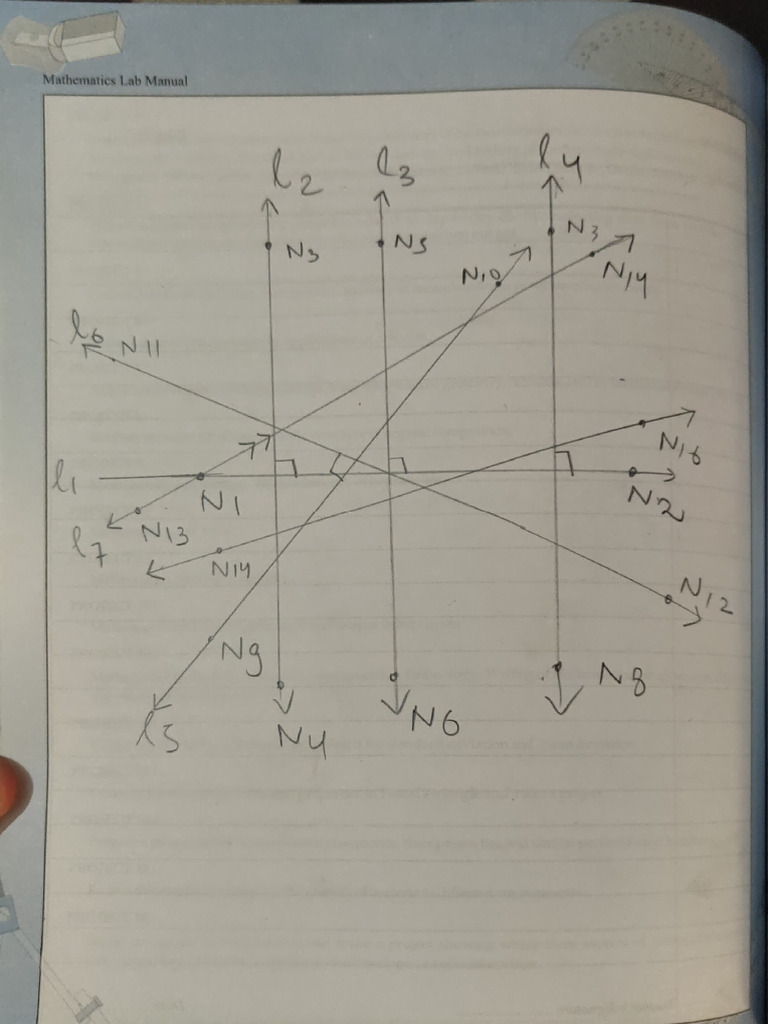 Mathematics Lab Manual
l2 l3 l4
N3 N5 N3
N10 N14
l6 N11
N16
l1 N1 N2
N13
l7
N14
N12
N9 N8
l5 N4 N6